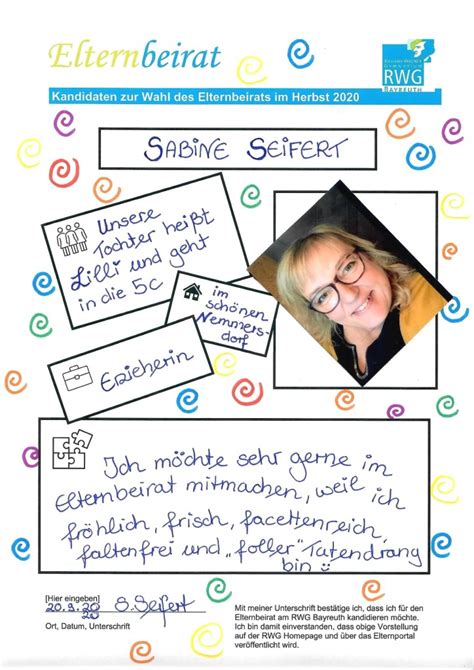 Elternbeirat
RICHARD-WAGNER
GYMNASIUM
RWG
BAYREUTH
Kandidaten zur Wahl des Elternbeirats im Herbst 2020
SABINE SEIFERT
Unsere
Tochter heißt
Lilli und geht
in die 5c
im
schönen
Nemmers-
dorf
Erzieherin
Ich möchte sehr gerne im
Elternbeirat mitmachen, weil ich
fröhlich, frisch, facettenreich,
faltenfrei und „foller" Tatendrang
bin
[Hier eingeben]
20.9.20
20
S. Seifert
Ort, Datum, Unterschrift
Mit meiner Unterschrift bestätige ich, dass ich für den
Elternbeirat am RWG Bayreuth kandidieren möchte.
Ich bin damit einverstanden, dass obige Vorstellung
auf der RWG Homepage und über das Elternportal
veröffentlicht wird.